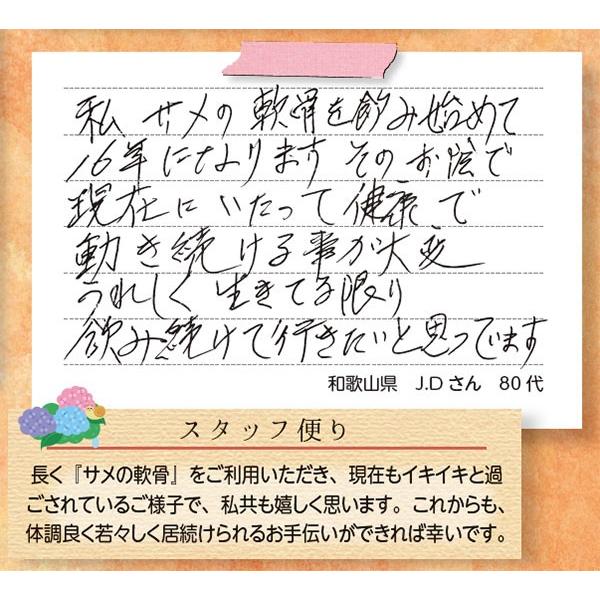 私 サメの軟骨を飲み始めて
16年になります そのお陰で
現在にいたって健康で
動き続ける事が大変
うれしく 生きてる限り
飲み続けて行きたいと思ってます
和歌山県 J.Dさん 80代
スタッフ便り
長く『サメの軟骨』をご利用いただき、現在もイキイキと過
ごされているご様子で、私共も嬉しく思います。これからも、
体調良く若々しく居続けられるお手伝いができれば幸いです。